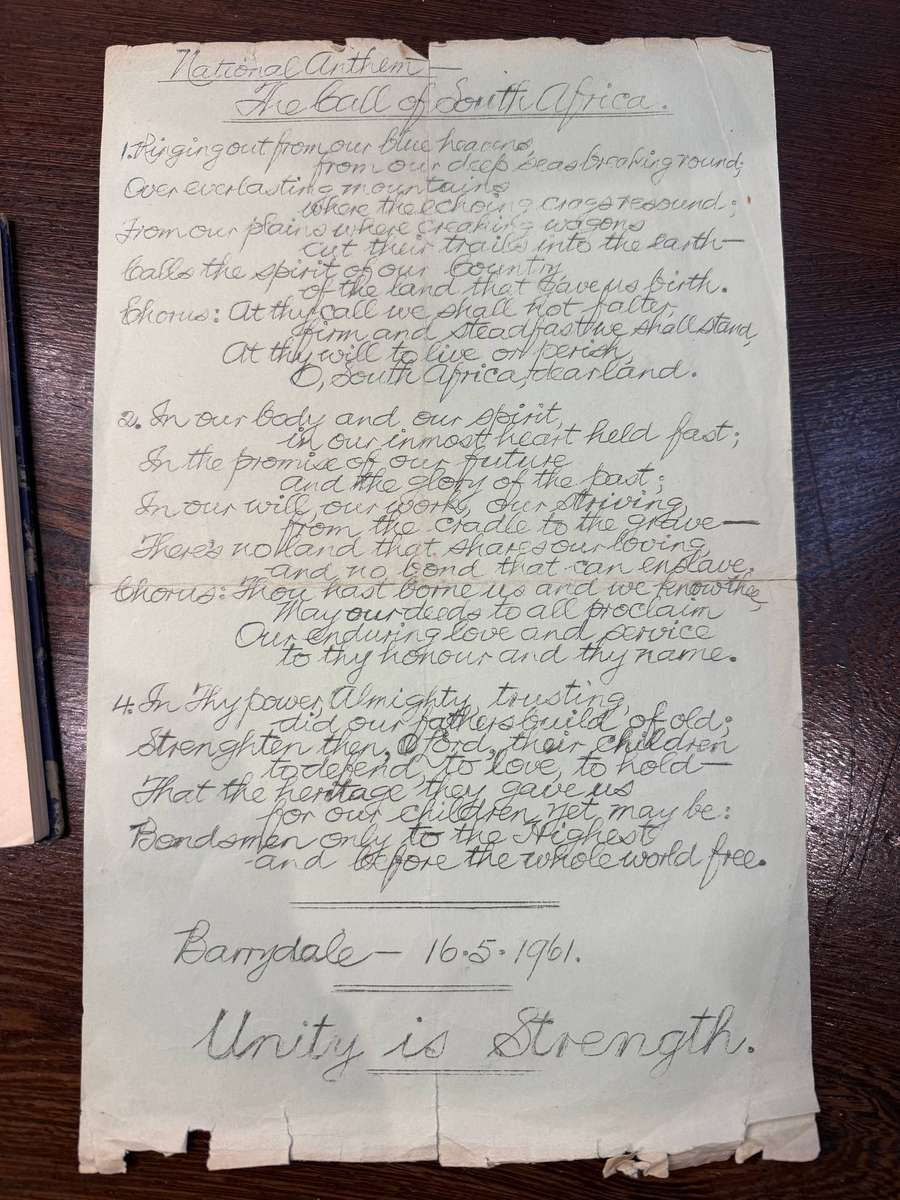 National Anthem —
The Call of South Africa.
1. Ringing out from our blue heavens,
from our deep seas breaking round;
Over everlasting mountains
where the echoing crags resound;
From our plains where creaking wagons
cut their trails into the earth—
Calls the spirit of our Country,
of the land that gave us birth.
Chorus: At thy call we shall not falter,
firm and steadfast we shall stand,
At thy will to live or perish,
O, South Africa, dear land.
2. In our body and our spirit,
in our inmost heart held fast;
In the promise of our future
and the glory of the past;
In our will, our work, our striving,
from the cradle to the grave—
There's no land that shares our loving,
and no bond that can enslave.
Chorus: Thou hast borne us and we know thee,
May our deeds to all proclaim
Our enduring love and service
to thy honour and thy name.
4. In Thy power, Almighty, trusting,
did our fathers build of old;
Strenghten then, O Lord, their children
to defend, to love, to hold—
That the heritage they gave us
for our children yet may be:
Bondsmen only to the Highest
and before the whole world free.
Barrydale — 16.5.1961.
Unity is Strength.